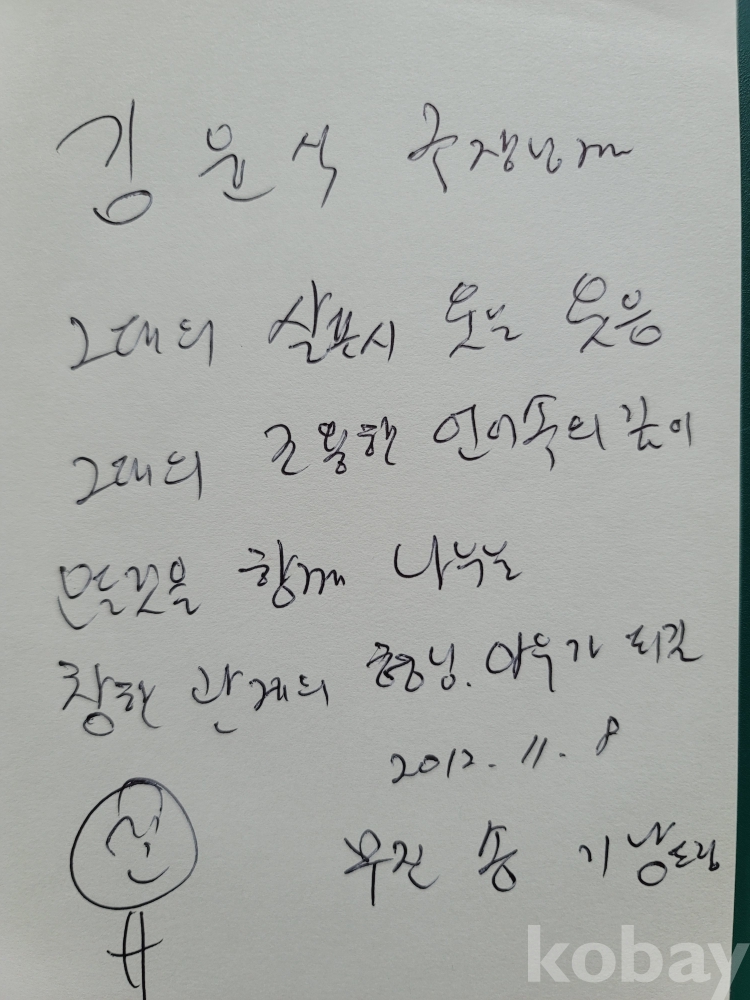 김윤식 국장님께
그대의 살포시 웃는 웃음
그대의 조용한 언어속의 깊이
모든것을 함께 나누는
찡한 관계의 형님. 아우가 되길
2012. 11. 8
무진 송 기 남드림
kobay